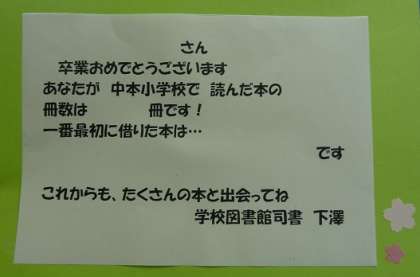 さん
卒業おめでとうございます
あなたが 中本小学校で 読んだ本の
冊数は 冊です!
一番最初に借りた本は…
です
これからも、たくさんの本と出会ってね
学校図書館司書 下澤